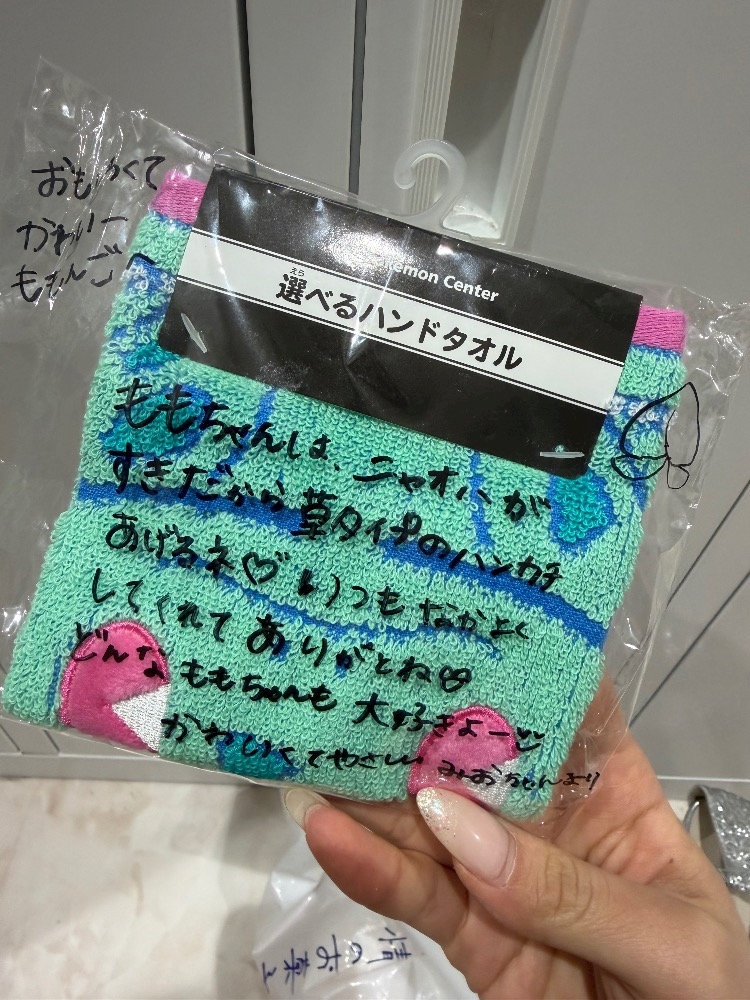 おもしろくて
かわいー
ももんご〜
emon Center
えら
選べるハンドタオル
ももちゃんは、ニャオハが
すきだから草タイプのハンカチ
あげるネ♡いつもなかよく
してくれてありがとね♡
どんなももちゃんも大好きよー
かわいくてやさしい みおちゃんより